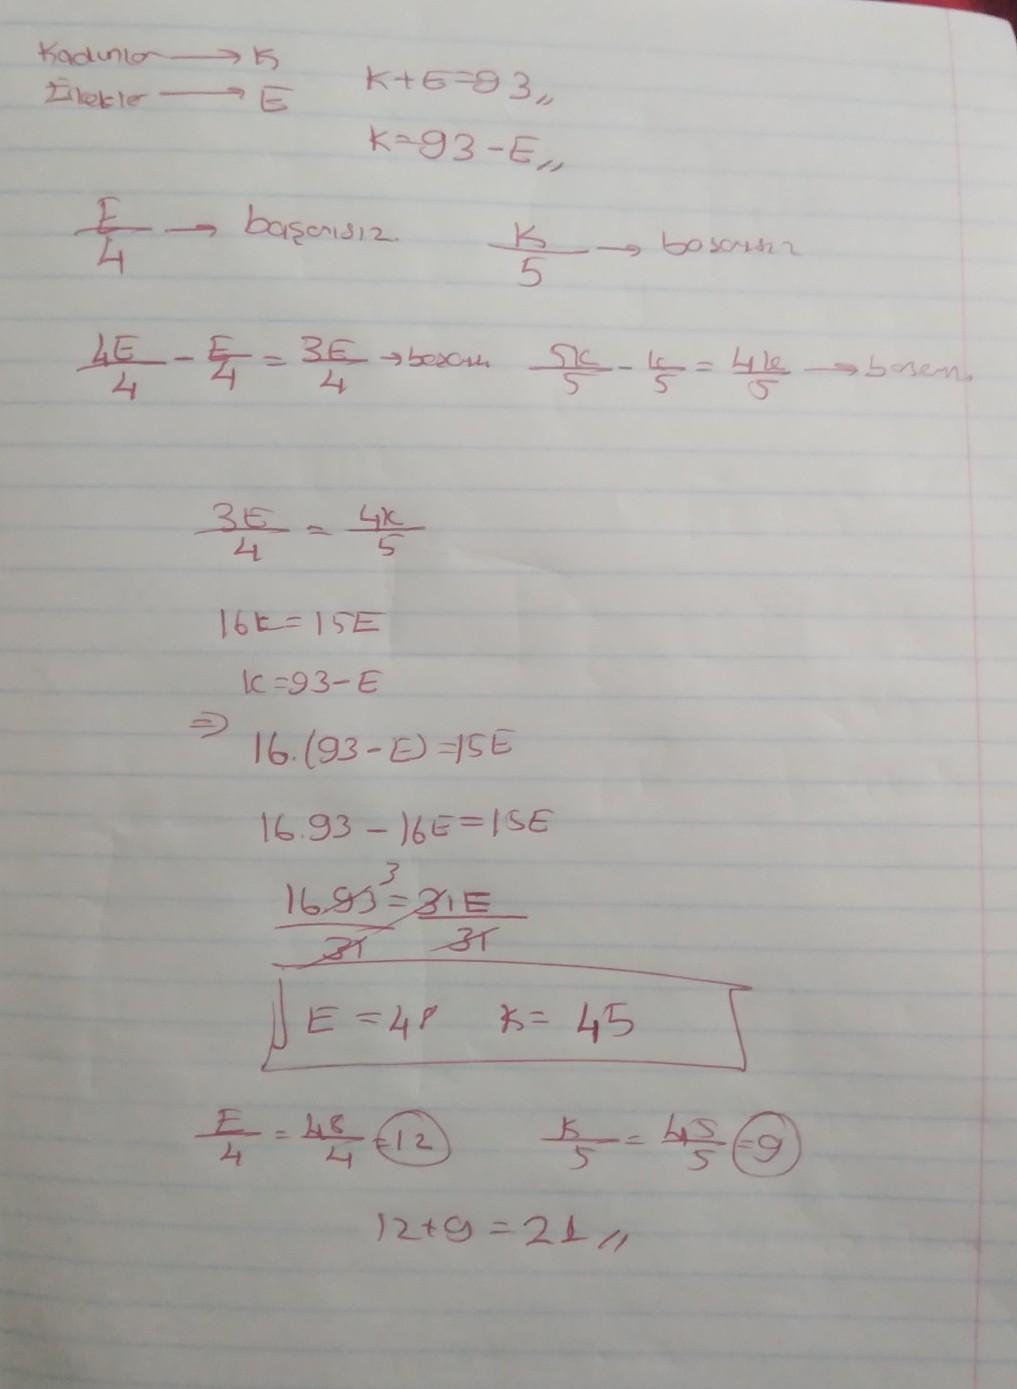 Kadınlar → K
Erkekler → E
K+E=93,,
K=93-E,,
E/4 → başarısız K/5 → basarısız
4E/4 - E/4 = 3E/4 → basarılı 5K/5 - K/5 = 4K/5 → basarılı
3E/4 = 4K/5
16K=15E
K=93-E
⇒ 16.(93-E)=15E
16.93-16E=15E
16.93/31 = 31E/31 3
E=48 K=45
E/4 = 48/4 = 12 K/5 = 45/5 = 9
12+9=21,,